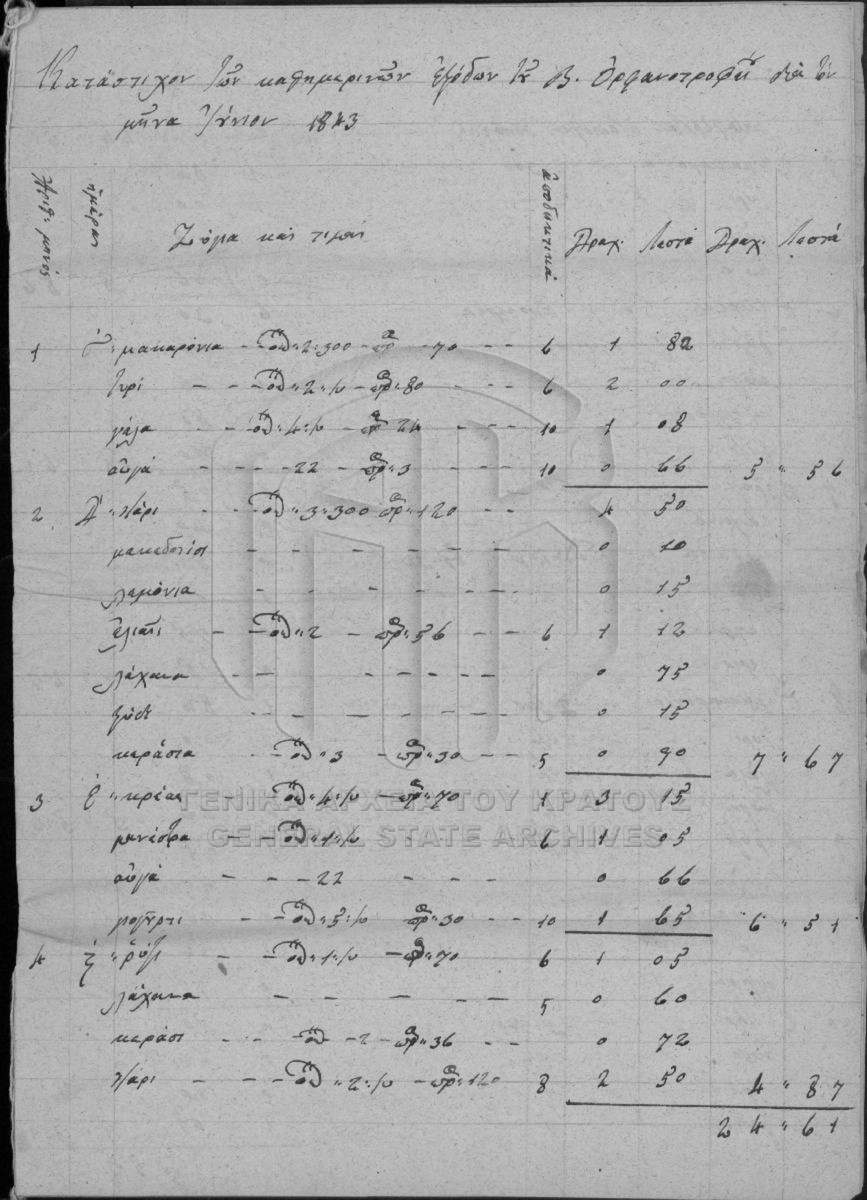 Κατάστιχον τῶν καθημερινῶν ἐξόδων τοῦ Β. Ὀρφανοτροφείου διὰ τὸν
μῆνα Ἰούνιον 1843
Ἀριθ: μηνός ἡμέραι Ζόγια καὶ τιμαί ἀποδεικτικά Δραχ. Λεπτά Δραχ. Λεπτά
1 μακαρόνια – ὀκ: 2: 300 – πρ – 70 – – 6 1 82
τυρί – – ὀκ: 2: ½ – πρ: 80 – – – 6 2 00
γάλα – – ὀκ: 4: ½ – πρ 24 – – – 10 1 08
αὐγά – – – – 22 – πρ: 3 – – – 10 0 66 5 " 56
2 Δ " ψάρι – – ὀκ: 3: 300 πρ: 120 – – 4 50
μακεδονίσι – – – – – – 0 10
λαμόνια – – – – – – 0 15
ἐλιαὶ – – ὀκ: 2 – πρ: 56 – – 6 1 12
λάχανα – – – – – – – 0 75
ξύδι – – – – – – 0 15
κεράσια – – ὀκ: 3 – πρ: 30 – – 5 0 90 7 " 67
3 " κρέας – – ὀκ: 4: ½ – πρ: 70 1 3 15
μανέστρα – – ὀκ: 1: ½ 6 1 05
αὐγά – – – 22 – – – 0 66
γιαοῦρτι – – ὀκ: 5: ½ πρ: 30 – – 10 1 65 6 " 51
4 " ρύζι – – ὀκ: 1: ½ – πρ: 70 6 1 05
λάχανα – – – – – 5 0 60
κεράσι – – – ὀκ – 2 – πρ: 36 – – 0 72
ψάρι – – – ὀκ: 2: ½ – πρ: 120 8 2 50 4 " 87
24 " 61
ΓΕΝΙΚΑ ΑΡΧΕΙΑ ΤΟΥ ΚΡΑΤΟΥΣ
GENERAL STATE ARCHIVES